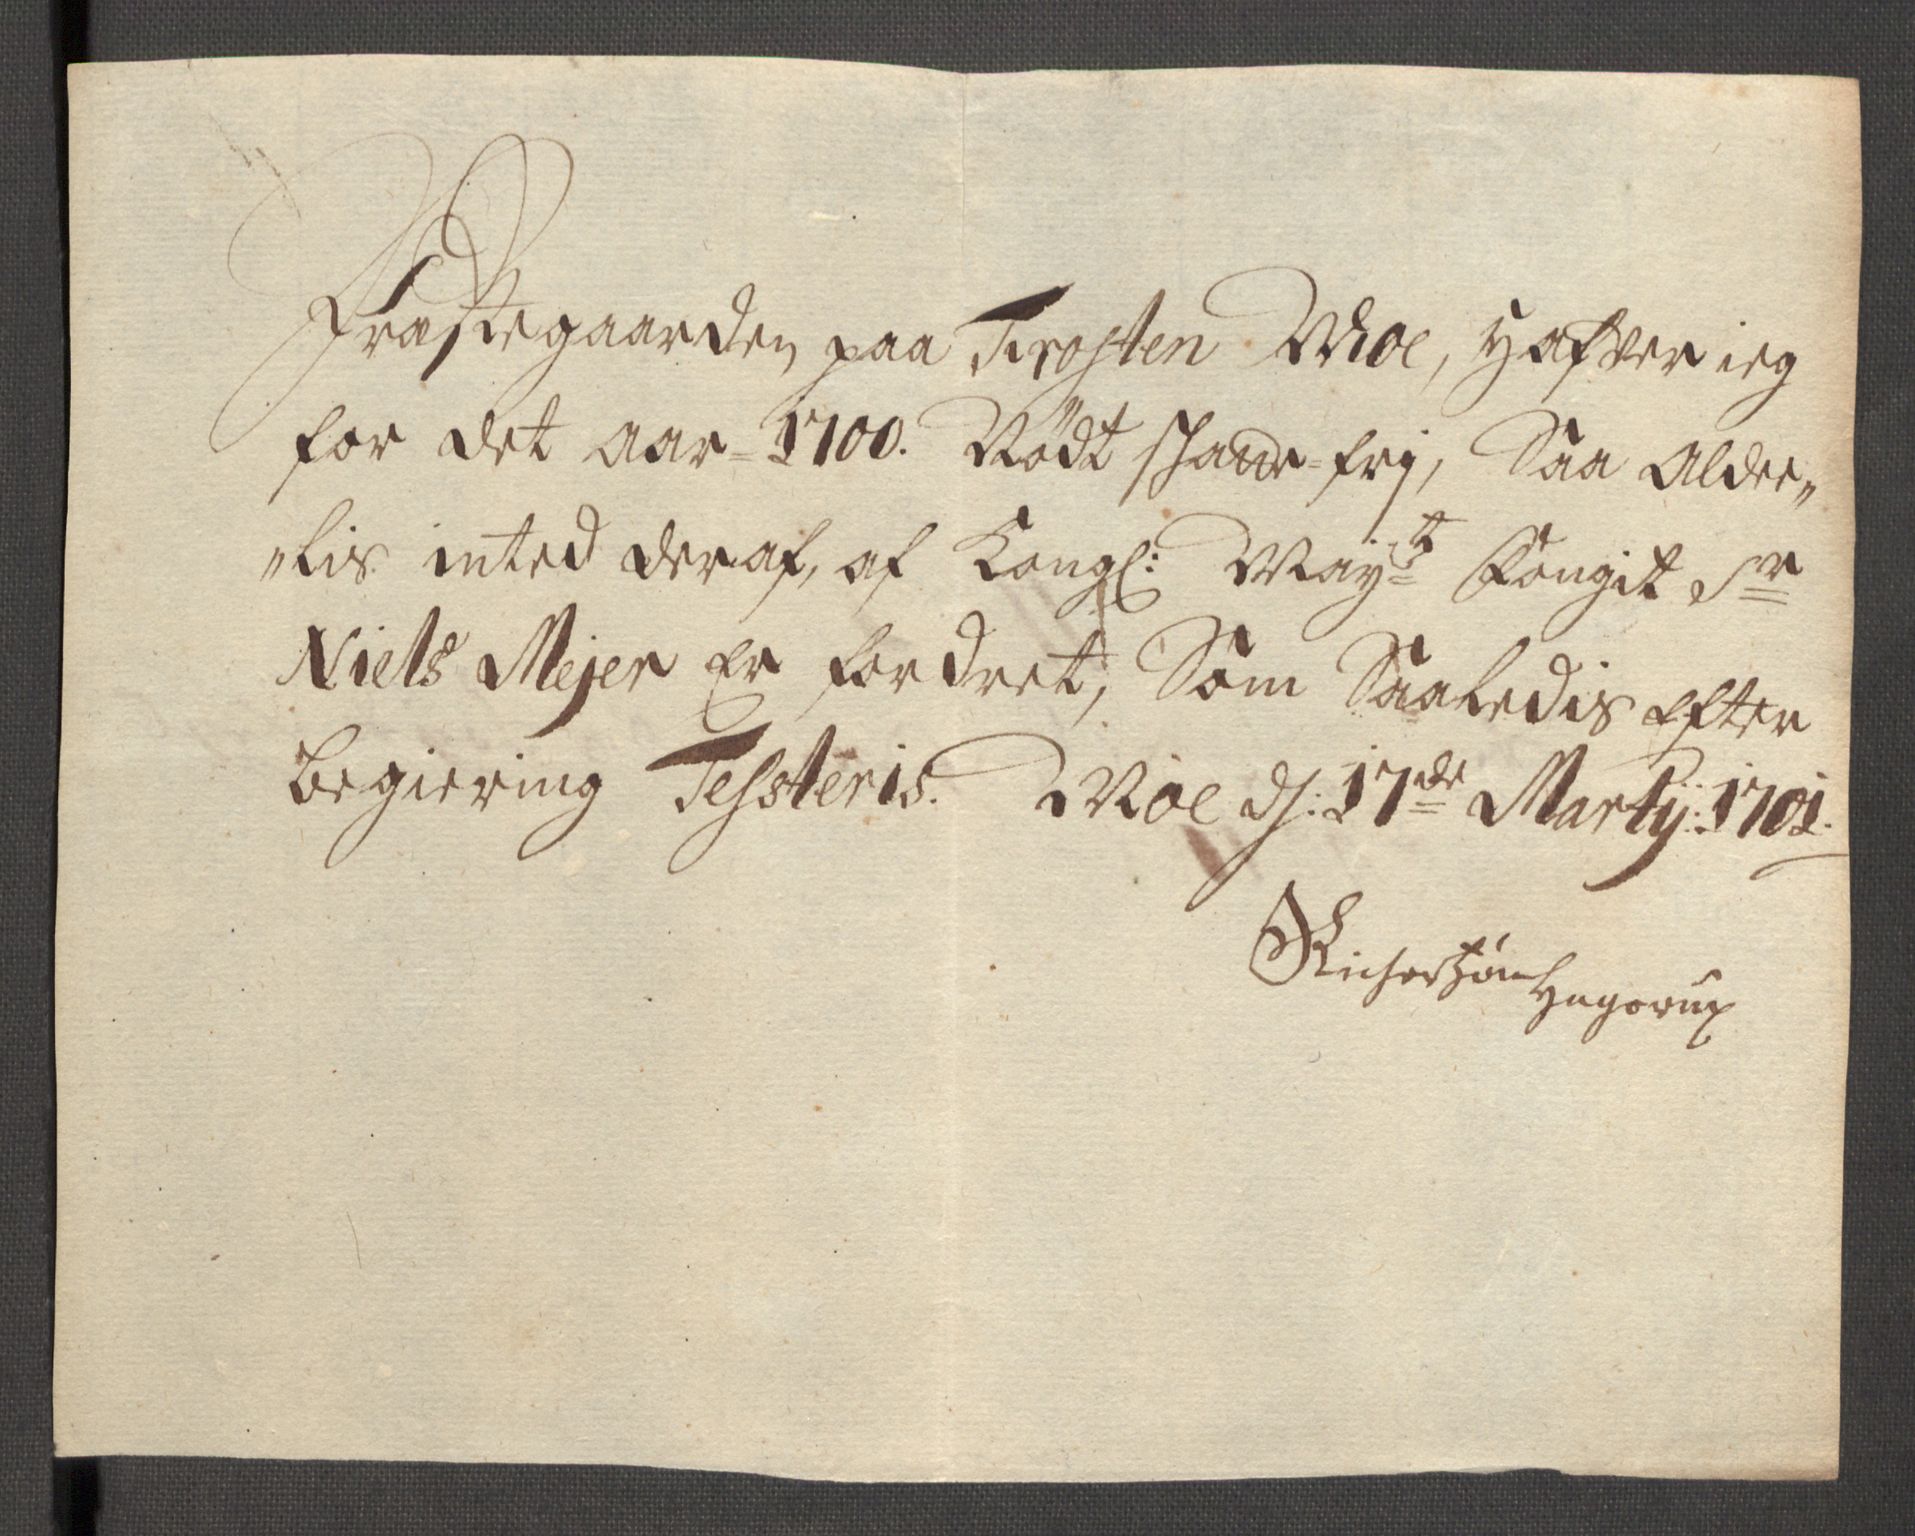 Præstegaarden paa Trosten Moe, Hafver ieg
for det Aar - 1700. Nödt schatte-frj, Saa Aldee„
„lis inted deraf, af Kongl: Maÿ:ts Fougit Sr
Niels Mejer Er fordret, Som Saaledis Efter
begiering Testeris. Moe dj: 17de Martij: 1701.
Hagerup